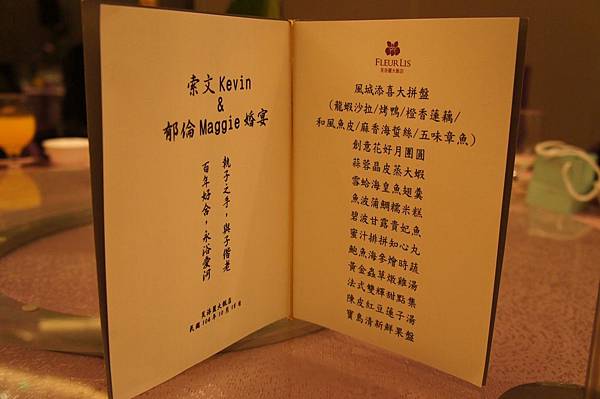 索文Kevin
&
郁倫Maggie婚宴
執子之手,與子偕老
百年好合,永浴愛河
芙洛麗大飯店
民國104年10月18日
FLEUR LIS
芙洛麗大飯店
風城添喜大拼盤
(龍蝦沙拉/烤鴨/橙香蓮藕/
和風魚皮/麻香海蜇絲/五味章魚)
創意花好月團圓
蒜蓉晶皮蒸大蝦
雲蛤海皇魚翅羹
魚波蒲鯛糯米糕
碧波甘露貴妃魚
蜜汁排拼知心丸
鮑魚海參燴時蔬
黃金蟲草燉雞湯
法式雙輝甜點集
陳皮紅豆蓮子湯
寶島清新鮮果盤